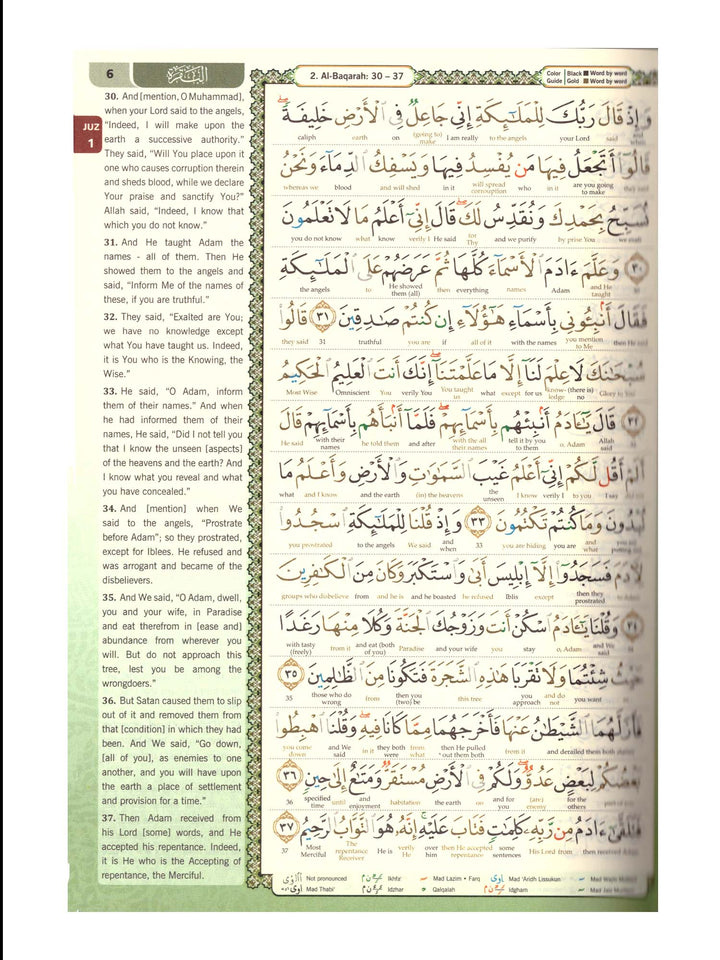 6
البقرة
JUZ
1
30. And [mention, O Muhammad],
when your Lord said to the angels,
"Indeed, I will make upon the
earth a successive authority."
They said, "Will You place upon it
one who causes corruption therein
and sheds blood, while we declare
Your praise and sanctify You?"
Allah said, "Indeed, I know that
which you do not know."
31. And He taught Adam the
names - all of them. Then He
showed them to the angels and
said, "Inform Me of the names of
these, if you are truthful."
32. They said, "Exalted are You;
we have no knowledge except
what You have taught us. Indeed,
it is You who is the Knowing, the
Wise."
33. He said, "O Adam, inform
them of their names." And when
he had informed them of their
names, He said, "Did I not tell you
that I know the unseen [aspects]
of the heavens and the earth? And
I know what you reveal and what
you have concealed."
34. And [mention] when We
said to the angels, "Prostrate
before Adam"; so they prostrated,
except for Iblees. He refused and
was arrogant and became of the
disbelievers.
35. And We said, "O Adam, dwell,
you and your wife, in Paradise
and eat therefrom in [ease and]
abundance from wherever you
will. But do not approach this
tree, lest you be among the
wrongdoers."
36. But Satan caused them to slip
out of it and removed them from
that [condition] in which they had
been. And We said, "Go down,
[all of you], as enemies to one
another, and you will have upon
the earth a place of settlement
and provision for a time."
37. Then Adam received from
his Lord [some] words, and He
accepted his repentance. Indeed,
it is He who is the Accepting of
repentance, the Merciful.
2. Al-Baqarah: 30 – 37
Color Guide Black Word by word Gold Word by word
وَإِذْ قَالَ رَبُّكَ لِلْمَلَٰٓئِكَةِ إِنِّي جَاعِلٌ فِي ٱلْأَرْضِ خَلِيفَةً
caliph earth on (going to) make I am really to the angels your Lord said and when
قَالُوٓا۟ أَتَجْعَلُ فِيهَا مَن يُفْسِدُ فِيهَا وَيَسْفِكُ ٱلدِّمَآءَ وَنَحْنُ
whereas we blood and will shed in it will spread corrouption who in it are you going to make they said
نُسَبِّحُ بِحَمْدِكَ وَنُقَدِّسُ لَكَ قَالَ إِنِّيٓ أَعْلَمُ مَا لَا تَعْلَمُونَ
you do not know what know verily I He said for Thy and we purify by prise You we exalt
٣٠ وَعَلَّمَ ءَادَمَ ٱلْأَسْمَآءَ كُلَّهَا ثُمَّ عَرَضَهُمْ عَلَى ٱلْمَلَٰٓئِكَةِ
the angels to He showed them (all) then everything names Adam and He taught
فَقَالَ أَنۢبِـُٔونِي بِأَسْمَآءِ هَٰٓؤُلَآءِ إِن كُنتُمْ صَٰدِقِينَ ٣١ قَالُوا۟
they said 31 truthful you are if all of it with the names you mention to Me then He said
سُبْحَٰنَكَ لَا عِلْمَ لَنَآ إِلَّا مَا عَلَّمْتَنَآ إِنَّكَ أَنتَ ٱلْعَلِيمُ ٱلْحَكِيمُ
Most Wise Omniscient You verily You You taught us what except for us know- lodge (there is) no Glory to You
٣٢ قَالَ يَٰٓـَٔادَمُ أَنۢبِئْهُم بِأَسْمَآئِهِمْ فَلَمَّآ أَنۢبَأَهُم بِأَسْمَآئِهِمْ قَالَ
He said with their names he told them and after with the all their names tell it by you to them o, Adam Allah said
أَلَمْ أَقُل لَّكُمْ إِنِّيٓ أَعْلَمُ غَيْبَ ٱلسَّمَٰوَٰتِ وَٱلْأَرْضِ وَأَعْلَمُ مَا
what and I know and the earth (in) the heavens the unseen I know verily I to you I say
تُبْدُونَ وَمَا كُنتُمْ تَكْتُمُونَ ٣٣ وَإِذْ قُلْنَا لِلْمَلَٰٓئِكَةِ ٱسْجُدُوا۟
you prostrated to the angels We said and when 33 you are hiding you are and what
لِءَادَمَ فَسَجَدُوٓا۟ إِلَّآ إِبْلِيسَ أَبَىٰ وَٱسْتَكْبَرَ وَكَانَ مِنَ ٱلْكَٰفِرِينَ
groups who disbelieve from and he is and he boasted he refused Iblis except then they prostrated to Adam
٣٤ وَقُلْنَا يَٰٓـَٔادَمُ ٱسْكُنْ أَنتَ وَزَوْجُكَ ٱلْجَنَّةَ وَكُلَا مِنْهَا رَغَدًا
with tasty (freely) from it and eat (both of you) Paradise and your wife you stay o, Adam and We said
حَيْثُ شِئْتُمَا وَلَا تَقْرَبَا هَٰذِهِ ٱلشَّجَرَةَ فَتَكُونَا مِنَ ٱلظَّٰلِمِينَ ٣٥
35 those who do wrong from then you (two) be this tree you approach and do not you want
فَأَزَلَّهُمَا ٱلشَّيْطَٰنُ عَنْهَا فَأَخْرَجَهُمَا مِمَّا كَانَا فِيهِ وَقُلْنَا ٱهْبِطُوا۟
you come down and We said in it they both were from what then He pulled out them both from it and derailed them both
بَعْضُكُمْ لِبَعْضٍ عَدُوٌّ وَلَكُمْ فِي ٱلْأَرْضِ مُسْتَقَرٌّ وَمَتَٰعٌ إِلَىٰ حِينٍ ٣٦
36 specified time until and enjoyment habitation the earth on and for you (are) enemy for the others
فَتَلَقَّىٰٓ ءَادَمُ مِن رَّبِّهِۦ كَلِمَٰتٍ فَتَابَ عَلَيْهِ إِنَّهُۥ هُوَ ٱلتَّوَّابُ ٱلرَّحِيمُ ٣٧
37 Most Merciful The repentance Receiver He is verily He over him then He accepted repentance some sentences His Lord from then received
Not pronounced Ikhfa' Mad Lazim • Farq Mad 'Aridh Lissukun
Mad Thabi'i Idzhar Qalqalah Idgham